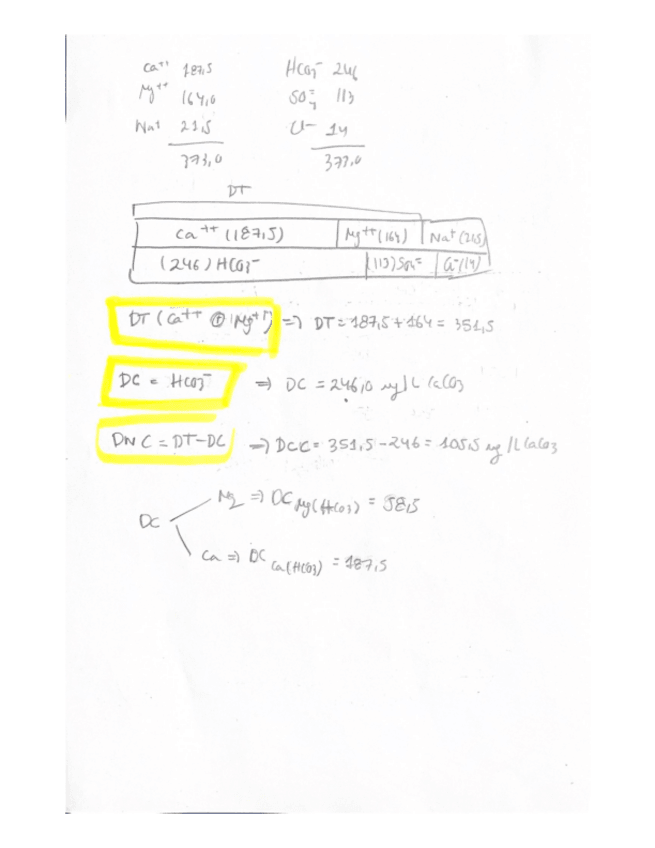 Ca++ 187,5 HCO3- 246
Mg++ 164,0 SO4= 113
Na+ 21,5 Cl- 14
373,0 373,0
DT
Ca++ (187,5) Mg++ (164) Na+ (21,5)
(246) HCO3- (113) SO4= Cl- (14)
DT (Ca++ ⊕ Mg++) => DT = 187,5 + 164 = 351,5
DC = HCO3- => DC = 246,0 mg/L CaCO3
DNC = DT-DC => DCC = 351,5 - 246 = 105,5 mg/L CaCO3
Mg => DC Mg(HCO3) = 58,5
DC
Ca => DC Ca(HCO3) = 187,5